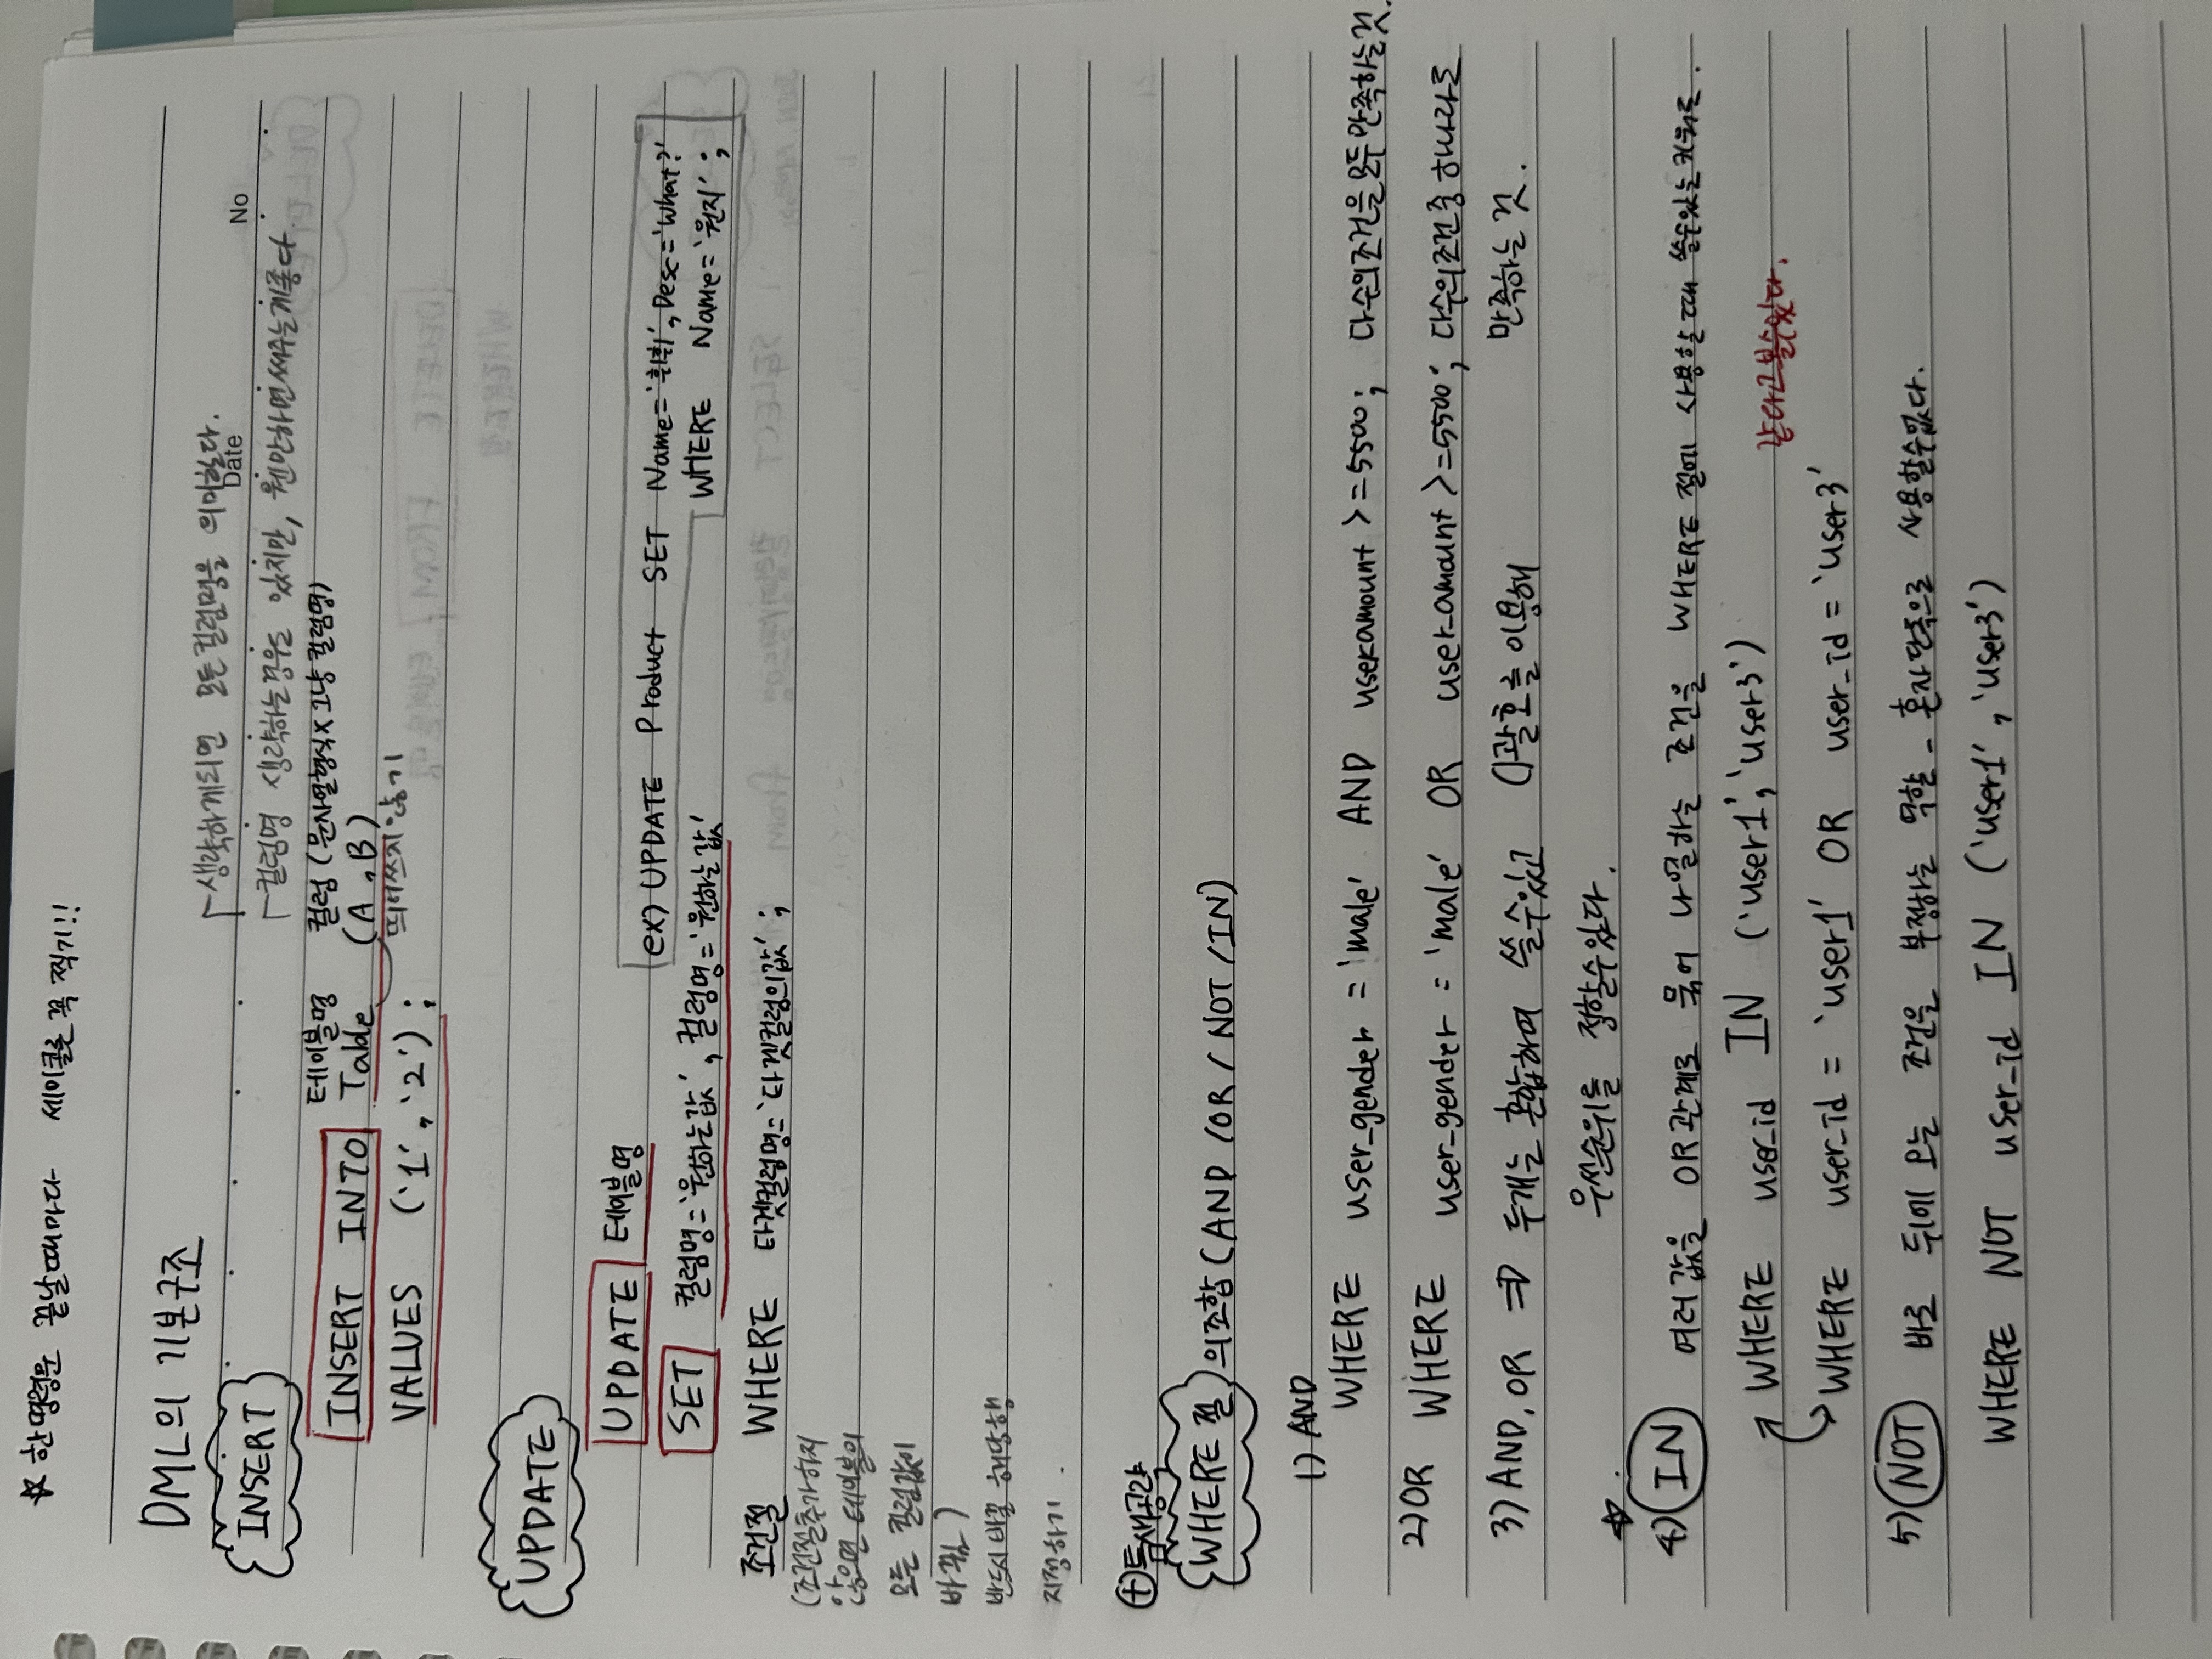 ☆ 한명령문 끝날때마다 세미콜론 꼭 찍기!!
DML의 기본구조
┌생략하게되면 모든컬럼명을 의미한다.
Date
No
INSERT
┌컬럼명 생략하는경우도 있지만, 웬만하면써주는게좋다.
테이블명 컬럼 (문자열형식X 그냥 컬럼명)
INSERT INTO Table (A, B)
띄어쓰지 않기
VALUES ('1', '2');
UPDATE
UPDATE 테이블명
ex) UPDATE Product SET Name='휘휘', Desc='What?'
SET 컬럼명='원하는값', 컬럼명='원하는 값'
WHERE Name='원지';
조건절 WHERE 타겟컬럼명='타겟컬럼의값';
(조건절추가하지
않으면 테이블의
모든 컬럼값이
바뀜)
반드시 바꿀 해당행
지정하기.
⊕틈새공략
WHERE 절 의조합 (AND / OR / NOT / IN)
1) AND
WHERE user_gender = 'male' AND user_amount >=5500; 다수의조건을모두만족하는것.
2) OR WHERE user_gender = 'male' OR user_amount >=5500; 다수의조건중 하나라도
만족하는 것.
3) AND, OR ⇒ 두개는 혼합하여 쓸수있고 ()괄호를 이용해
우선순위를 정할수있다.
☆
4) IN 여러값을 OR관계로 묶어 나열하는 조건을 WHERE 절에 사용할때 쓸수있는키워드.
WHERE user_id IN ('user1', 'user3')
같다고볼수있다.
WHERE user_id = 'user1' OR user_id = 'user3'
5) NOT 바로 뒤에 오는 조건을 부정하는 역할 - 혼자단독으로 사용할수없다.
WHERE NOT user_id IN ('user1', 'user3')